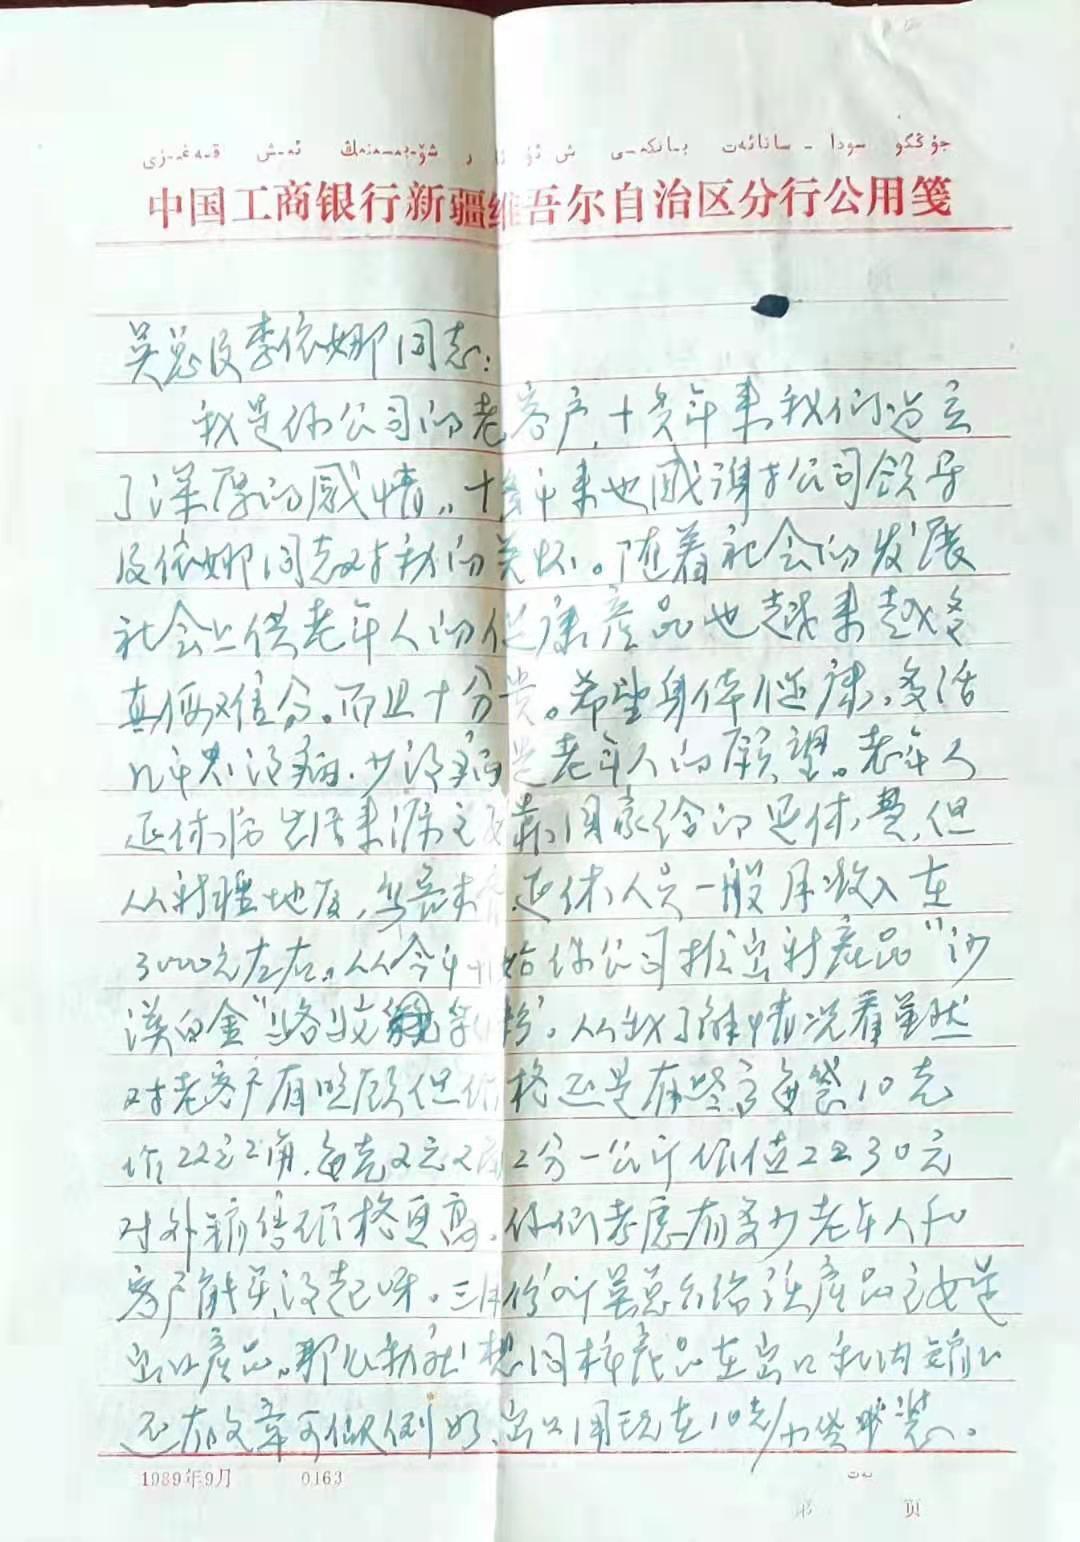 جۇڭگو سودا - سانائەت بانكىسى
中国工商银行新疆维吾尔自治区分行公用笺
吴总及李依娜同志:
我是你公司的老客户,十多年来我们建立
了深厚的感情。十多年来也感谢公司领导
及依娜同志对我的关怀。随着社会的发展
社会上供老年人的健康产品也越来越多
真假难分。而且十分贵。希望身体健康、多活
几年没病、少没病是老年人的愿望。老年人
退休后生活来源主要靠国家给的退休费,但
从新疆地区,乌鲁木齐退休人员一般月收入在
3000元左右。从今年开始你公司推出新产品“沙
漠白金”骆驼乳粉。从我了解情况看虽然
对老客户有照顾但价格还是有些高每袋10克
价22元2角,每克2元2角2分一公斤价值2230元
对外销售价格更高,你们考虑有多少老年人和
客户能买没起呀。三月份听吴总介绍该产品主要是
出口产品。那么我就想同样产品在出口和内销上
还有文章可做例如,出口用现在10克/小袋装。
1989年9月 0163
第 页